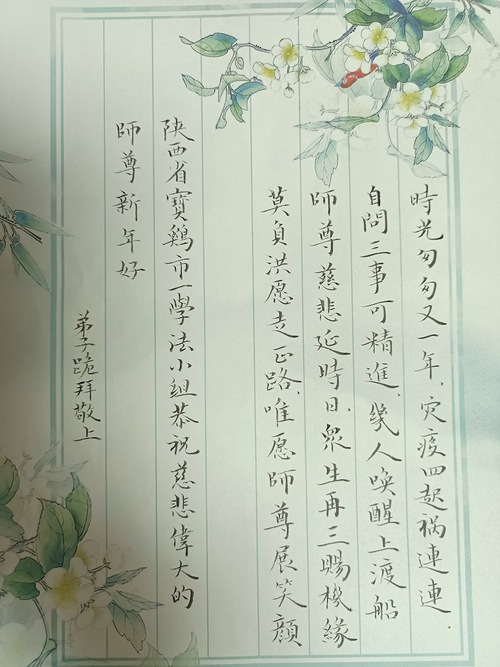 時光匆匆又一年，灾疫四起祸連連．
自問三事可精進，幾人唤醒上渡船
師尊慈悲延時日，眾生再三賜機緣
莫負洪愿走正路，唯愿師尊展笑顔
陕西省寶鷄市一學法小組恭祝慈悲偉大的
師尊新年好
弟子跪拜敬上